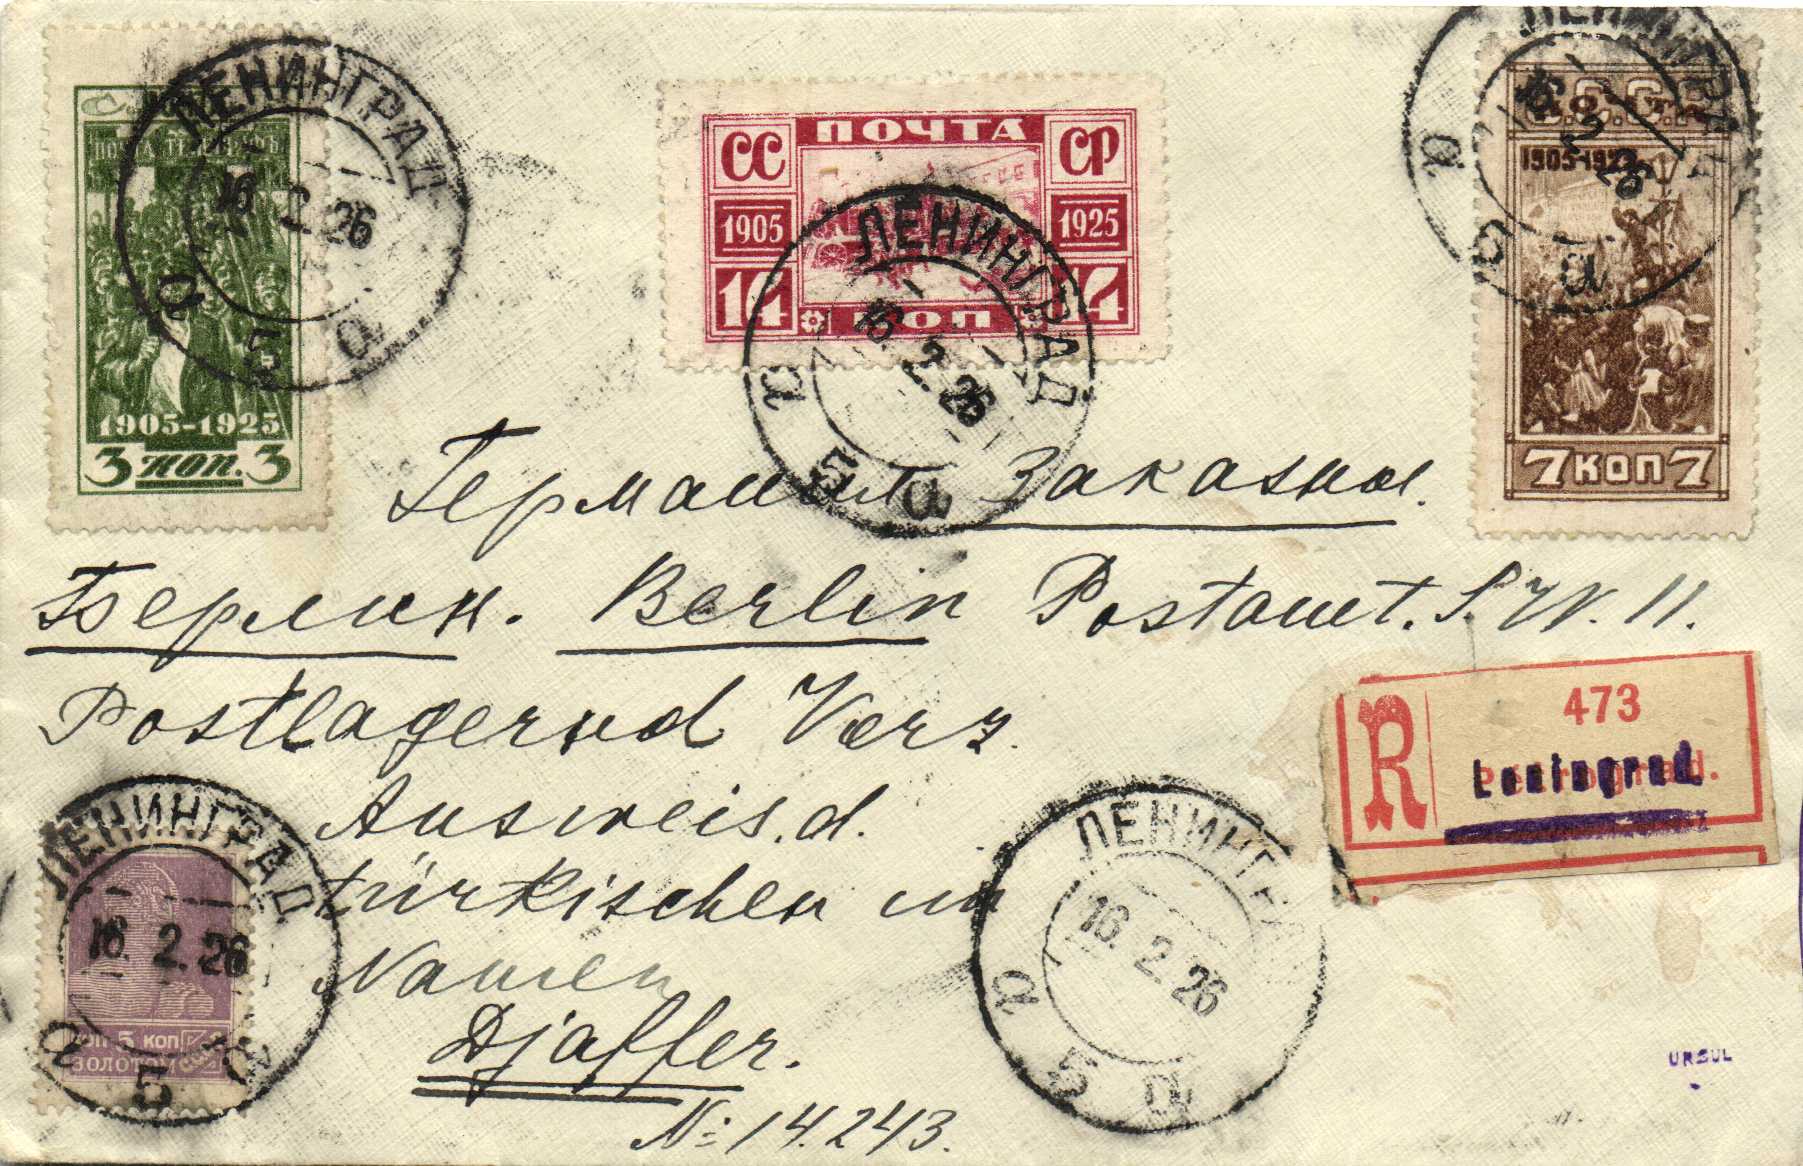 ПОЧТА ТЕЛЕГРАФЪ
1905-1925
3 КОП. 3
ЛЕНИНГРАД
16 2 26
ПОЧТА
СС СР
1905 1925
14 КОП 14
ЛЕНИНГРАД
16. 2. 26
5
С.С.С.Р.
1905-1925
7 КОП 7
ЛЕНИНГРАД
26
Германия Заказное.
Берлин. Berlin Postamt. S.W. 11.
Postlagernd Vorz.
Ausweis. d.
türkischen im
Namen
Djaffer.
N: 14.243.
R
473
Pétrograd.
Leningrad
ЛЕНИНГРАД
16. 2. 26
5
КОП 5 КОП
ЗОЛОТОМ
ЛЕНИНГРАД
16. 2. 26
5
URSUL